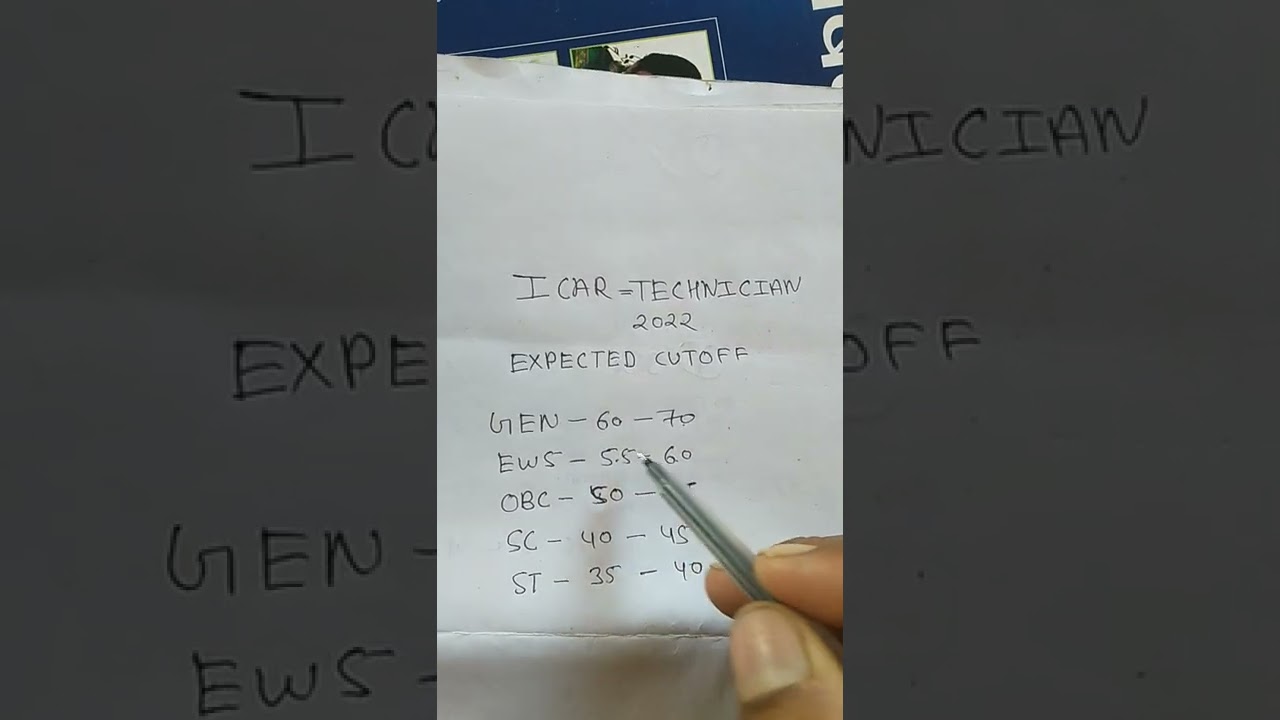 ICAR = TECHNICIAN
2022
EXPECTED CUTOFF
GEN - 60 - 70
EWS - 55 - 60
OBC - 50 -
SC - 40 - 45
ST - 35 - 40